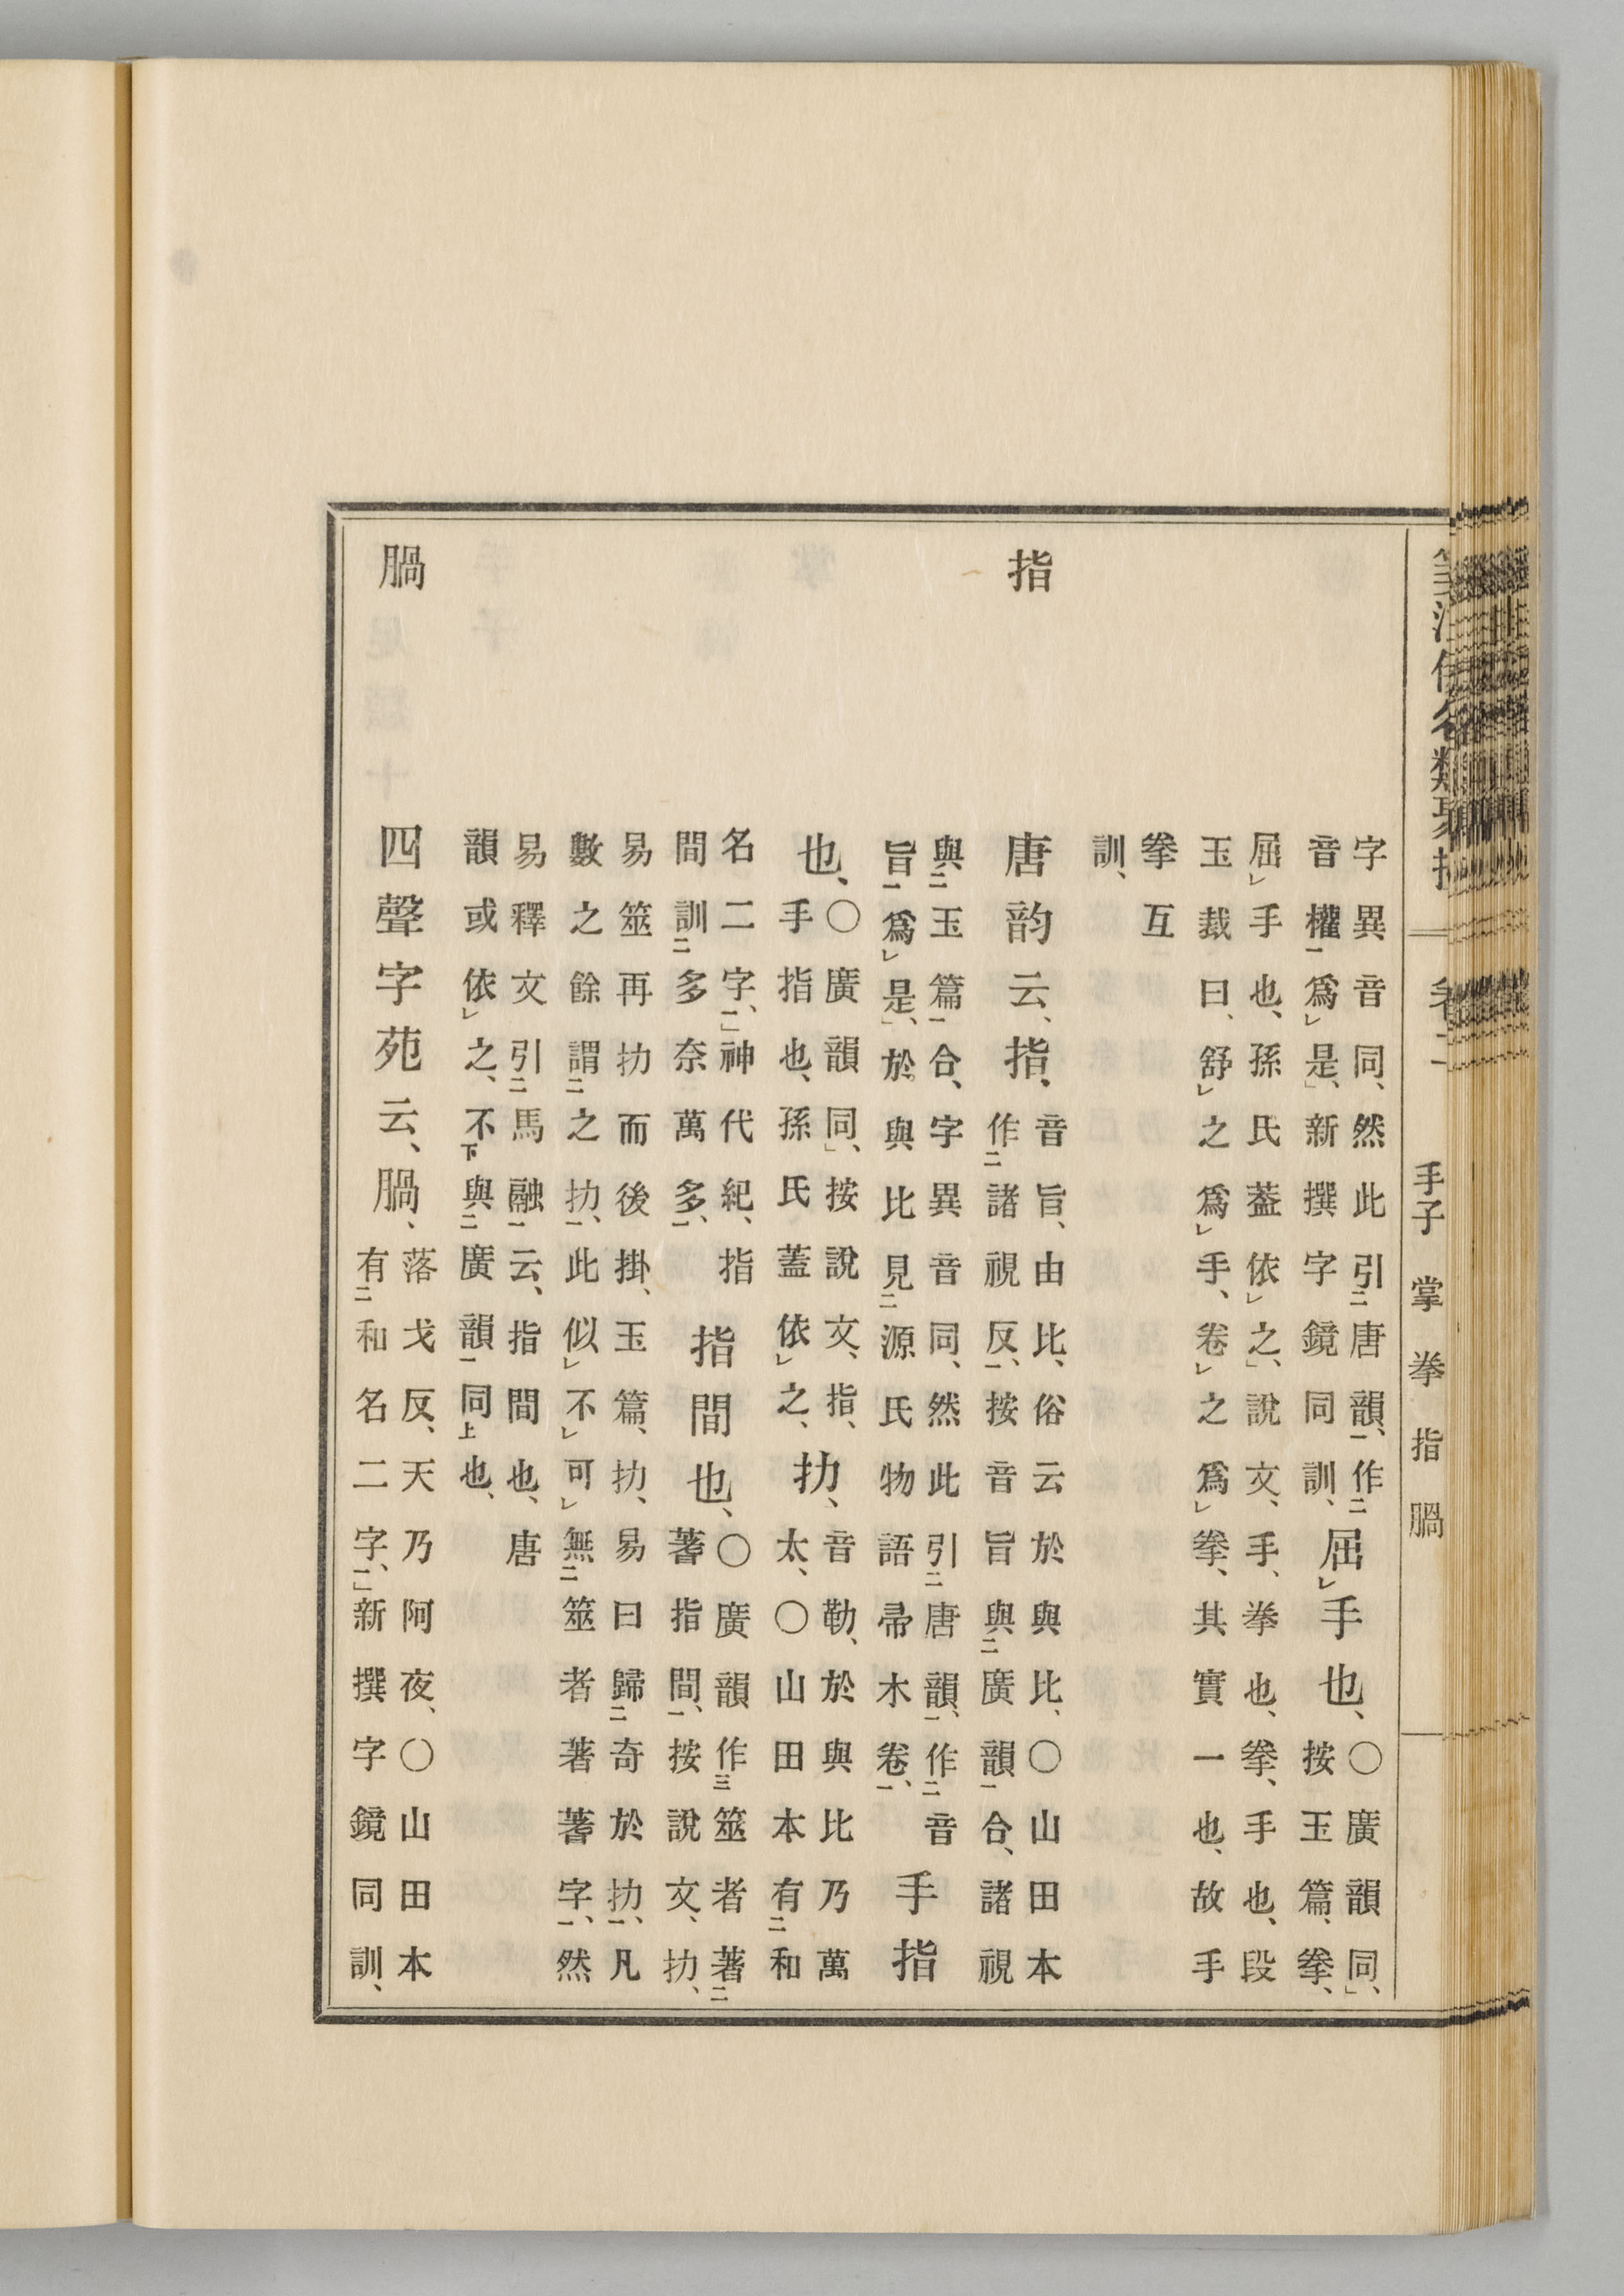 名類聚
手子 掌 拳 指 腡
字異音同、然此引唐韻、作
音權爲是、新撰字鏡同訓、
屈手也、
〇廣韻同、
按玉篇、拳、
屈手也、孫氏葢依之、說文、手、拳也、拳、手也、段
玉裁曰、舒之爲手、卷之爲拳、其實一也、故手
拳互
訓、
指
唐韵云、指、
音旨、由比、俗云於與比、〇山田本
作諸視反、按音旨與廣韻合、諸視
與玉篇合、字異音同、然此引唐韻、作音
旨爲是、於與比見源氏物語帚木卷、
手指
也、
〇廣韻同、按說文、指、
手指也、孫氏蓋依之、
扐、
音勒、於與比乃萬
太、〇山田本有和
名二字、神代紀、指
間訓多奈萬多、
指間也、
〇廣韻作筮者著
蓍指間、按說文、扐、
易筮再扐而後掛、玉篇、扐、易曰歸奇於扐、凡
數之餘謂之扐、此似不可無筮者著蓍字、然
易釋文引馬融云、指間也、唐
韻或依之、不與廣韻同也、
腡
四聲字苑云、腡、
落戈反、天乃阿夜、〇山田本
有和名二字、新撰字鏡同訓、